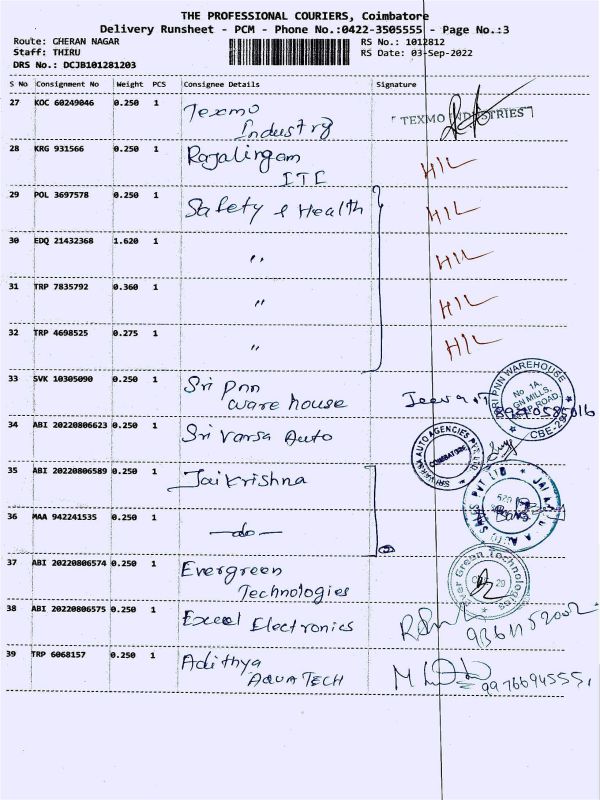 THE PROFESSIONAL COURIERS, Coimbatore
Delivery Runsheet - PCM - Phone No.:0422-3505555 - Page No.:3
Route: GHERAN NAGAR RS No.: 1012812
Staff: THIRU RS Date: 03-Sep-2022
DRS No.: DCJB101281203
S No Consignment No Weight PCS Consignee Details Signature
27 KOC 60249046 0.250 1 Texmo Industry TEXMO INDUSTRIES
28 KRG 931566 0.250 1 Rajalingam ITI HIL
29 POL 3697578 0.250 1 Safety & Health HIL
30 EDQ 21432368 1.620 1 " HIL
31 TRP 7835792 0.360 1 " HIL
32 TRP 4698525 0.275 1 " HIL
33 SVK 10305090 0.250 1 Sri Pnn ware house
SRI PNN WAREHOUSE No 1A, CBE-29
34 ABI 20220806623 0.250 1 Sri Varsa Auto
COIMBATORE
35 ABI 20220806589 0.250 1 Jaikrishna
36 MAA 942241535 0.250 1 -do-
37 ABI 20220806574 0.250 1 Evergreen Technologies
Ever Green Technologies
38 ABI 20220806575 0.250 1 Excel Electronics
39 TRP 6068157 0.250 1 Adithya AQUA TECH 9976694555